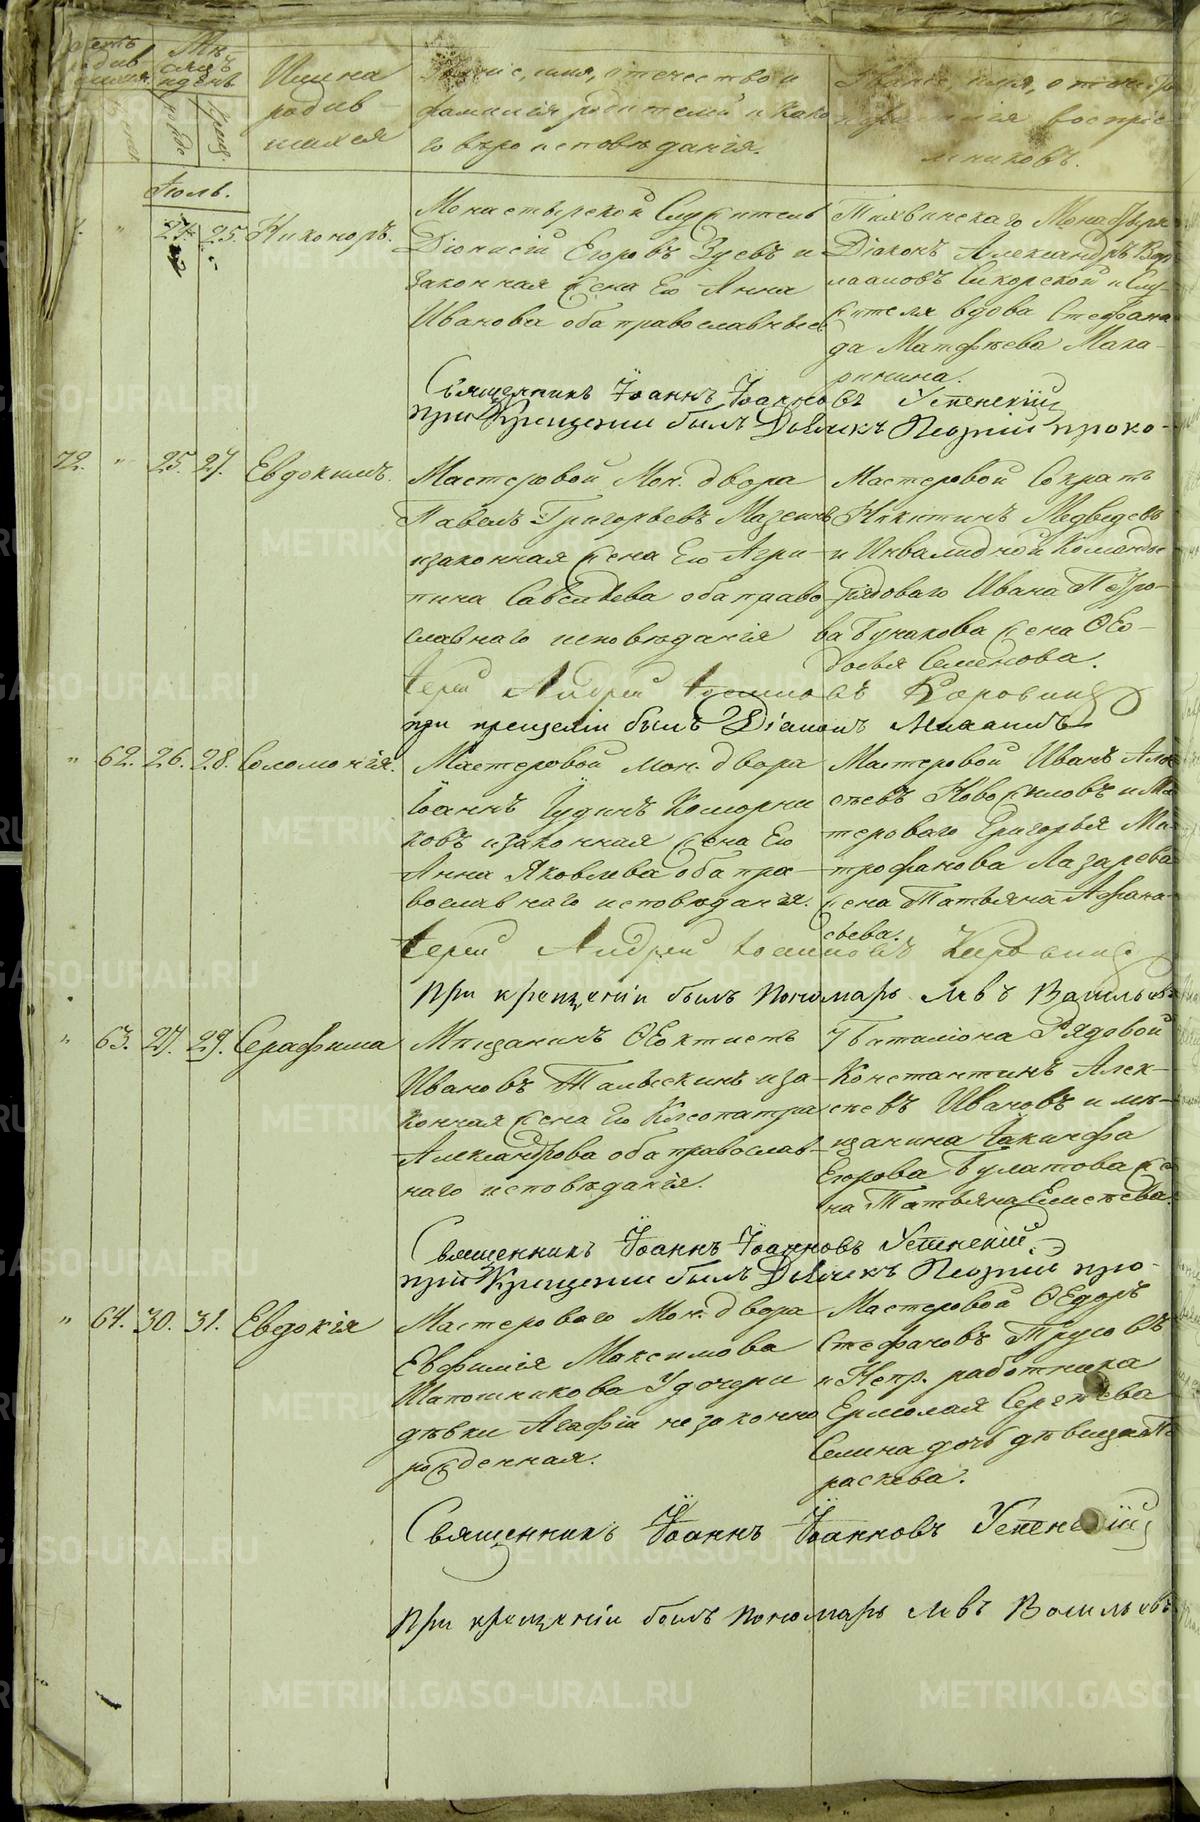 Имена родив-
шихся
Званіе, имя, отечество и
фамилія родителей и како
го вѣроисповѣданія.
Званіе, имя, отечест
и фамилія воспріе
мниковъ.
Іюль.
24. 25. Никоноръ.
Монастырской Служитель
Діонисій Егоровъ Зуевъ и
законная жена Его Анна
Иванова оба православные
Тихвинскаго Монастыря
Діаконъ Александръ Вар
лаамовъ Сикорской и Слу
жителя вдова Стефани
да Матфѣева Мака-
ринина.
Священникъ Іоаннъ Іоанновъ Успенскій
при Крещеніи былъ Дьячекъ Георгій проко-
72. " 25. 27. Евдокимъ.
Мастеровой Мон. двора
Павелъ Григорьевъ Мазеинъ
и законная жена Его Агри-
пина Савельева оба право-
славнаго исповѣданія
Мастеровой Сократъ
Никитинъ Медведевъ
и Инвалидной Команды
Рядоваго Ивана Петро-
ва Бунакова жена Ѳео-
досья Семенова.
Іерей Андрей Іоанновъ Коровинъ
при крещеніи былъ Діаконъ Михаилъ
" 62. 26. 28. Соломонія.
Мастеровой мон. двора
Іоаннъ Іудинъ Коморни
ковъ и законная жена Его
Анна Яковлева оба пра-
вославнаго исповѣданія.
Мастеровой Иванъ Алек
сѣевъ Новожиловъ и Ма
стероваго Григорья Ми
трофанова Лазарева
жена Татьяна Афана-
сьева.
Іерей Андрей Іоанновъ Коровинъ
При крещеніи былъ Пономарь Левъ Васильевъ
" 63. 27. 29. Серафима
Мѣщанинъ Ѳеоктистъ
Ивановъ Талыскинъ и за-
конная жена Его Клеопатра
Александрова оба православ-
наго исповѣданія.
7 Баталіона Рядовой
Константинъ Алек-
сѣевъ Ивановъ и мѣ-
щанина Іакинфа
Егорова Булатова же
на Татьяна Елисѣева.
Священникъ Іоаннъ Іоанновъ Успенскій
при Крещеніи былъ Дьячекъ Георгій про-
" 64. 30. 31. Евдокія
Мастероваго Мон. двора
Евфимія Максимова
Шапошникова у дочери
дѣвки Агафіи незаконно
рожденная.
Мастеровой Ѳедоръ
Стефановъ Трусовъ
и Непр. работника
Ермолая Сергѣева
Семина дочь дѣвица Па
раскева.
Священникъ Іоаннъ Іоанновъ Успенскій
При крещеніи былъ Пономарь Левъ Васильевъ
METRIKI.GASO-URAL.RU